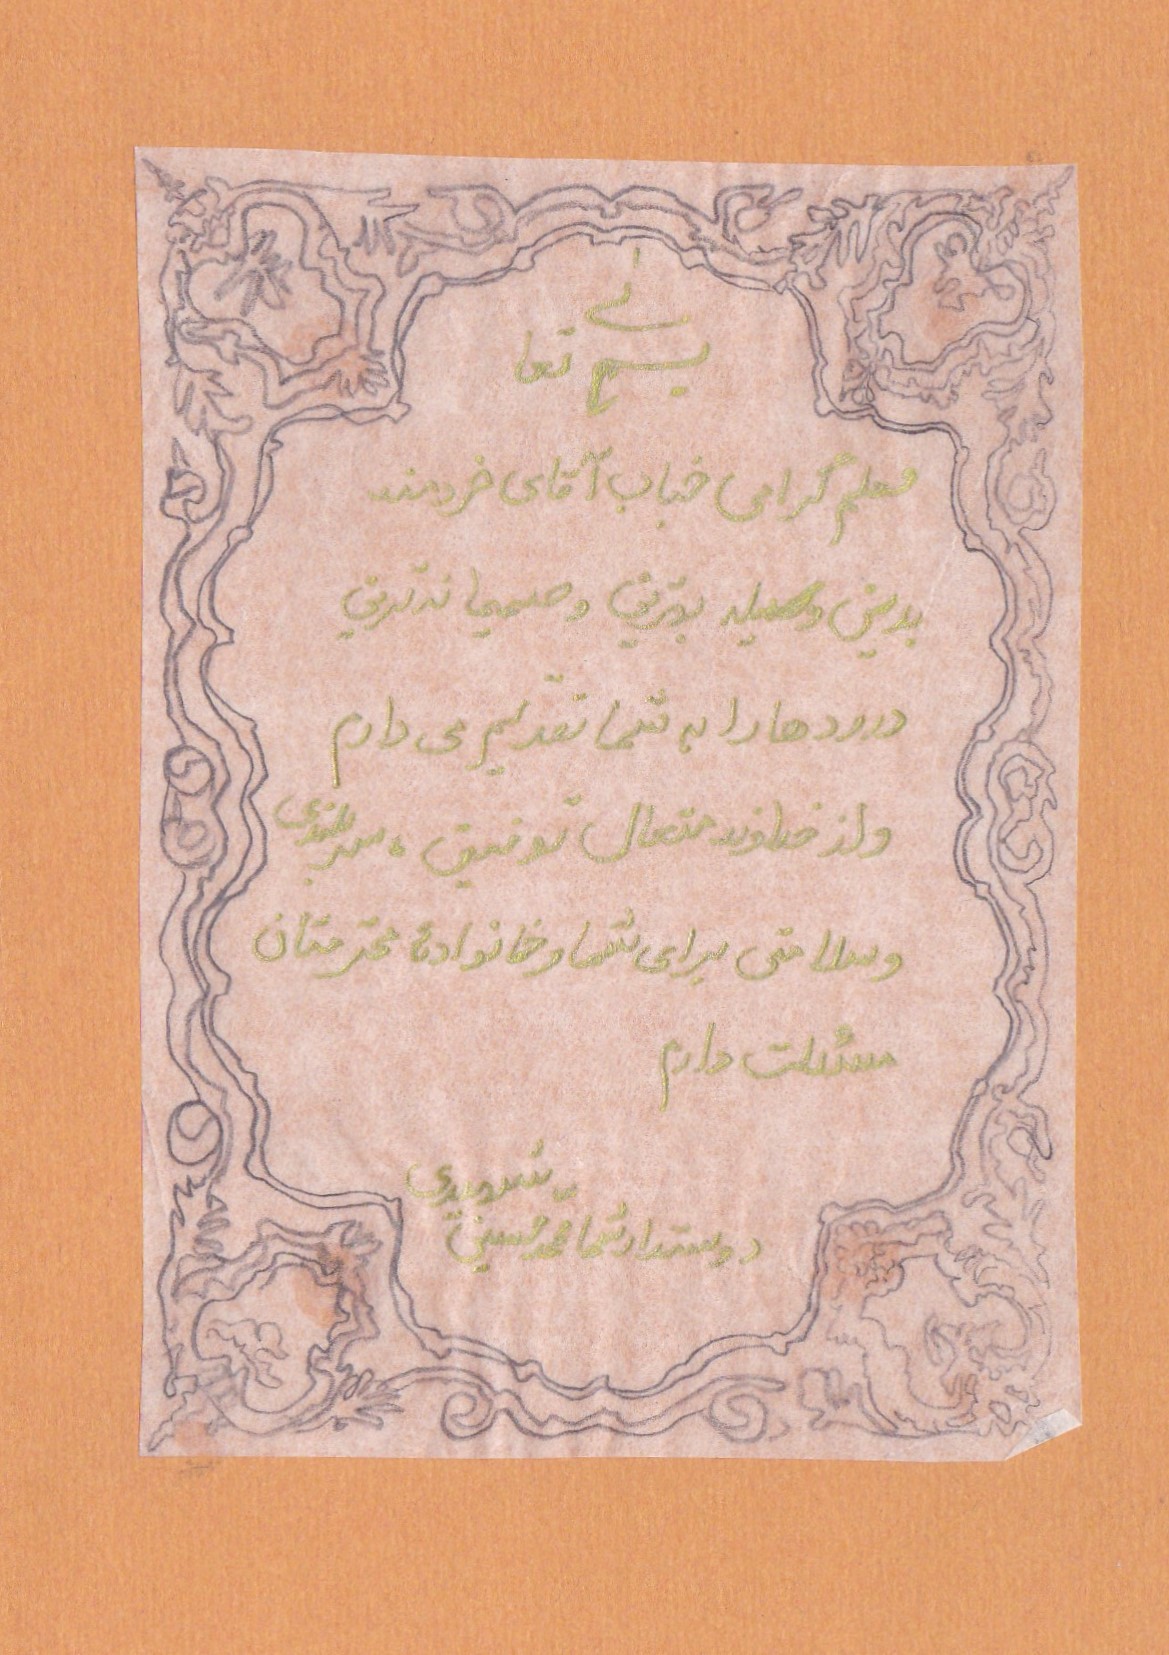 بسمه تعالی
معلم گرامی جناب آقای خردمند
بدین وسیله بهترین و صمیمانه ترین
درودها را به شما تقدیم می دارم
و از خداوند متعال توفیق ، سربلندی
و سلامتی برای شما و خانوادهٔ محترمتان
مسئلت دارم
دوستدار شما محمد حسین